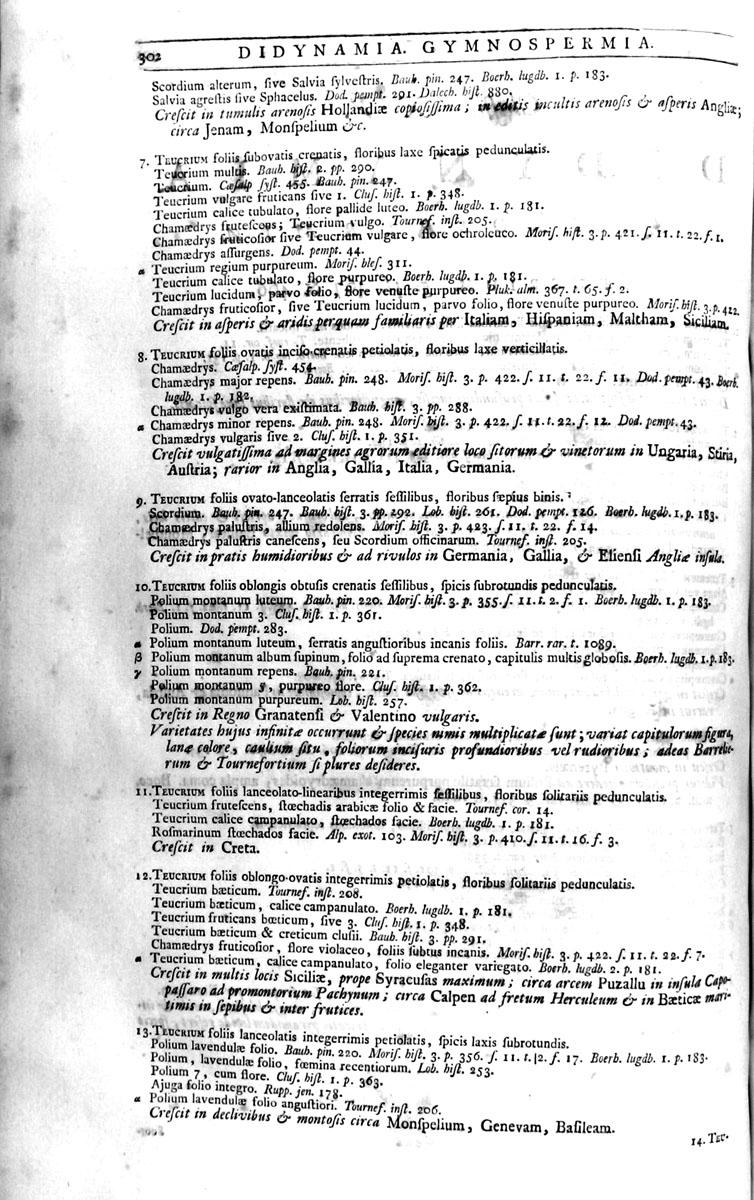 302 DIDYNAMIA. GYMNOSPERMIA.
Scordium alterum, ſive Salvia ſylveſtris. Bauh. pin. 247. Boerh. lugdb. 1. p. 183.
Salvia agreſtis ſive Sphacelus. Dod. pempt. 291. Dalech. hiſt. 880.
Creſcit in tumulis arenoſis Hollandiæ copioſiſſima; in editis incultis arenoſis & aſperis Angliæ;
circa Jenam, Monſpelium &c.
7. TEUCRIUM foliis ſubovatis crenatis, floribus laxe ſpicatis pedunculatis.
Teucrium multis. Bauh. hiſt. 2. pp. 290.
Teucrium. Cæſalp ſyſt. 455. Bauh. pin. 247.
Teucrium vulgare fruticans ſive 1. Cluſ. hiſt. 1. p. 348.
Teucrium calice tubulato, flore pallide luteo. Boerh. lugdb. 1. p. 181.
Chamædrys fruteſcens; Teucrium vulgo. Tournef. inſt. 205.
Chamædrys fruticoſior ſive Teucrium vulgare, flore ochroleuco. Moriſ. hiſt. 3. p. 421. ſ. 11. t. 22. f. 1.
Chamædrys aſſurgens. Dod. pempt. 44.
α Teucrium regium purpureum. Moriſ. bleſ. 311.
Teucrium calice tubulato, flore purpureo. Boerh. lugdb. 1. p. 181.
Teucrium lucidum, parvo folio, flore venuſte purpureo. Pluk. alm. 367. t. 65. f. 2.
Chamædrys fruticoſior, ſive Teucrium lucidum, parvo folio, flore venuſte purpureo. Moriſ. hiſt. 3. p. 422.
Creſcit in aſperis & aridis perquam familiaris per Italiam, Hiſpaniam, Maltham, Siciliam.
8. TEUCRIUM foliis ovatis inciſo-crenatis petiolatis, floribus laxe verticillatis.
Chamædrys. Cæſalp. ſyſt. 454.
Chamædrys major repens. Bauh. pin. 248. Moriſ. hiſt. 3. p. 422. ſ. 11. t. 22. f. 11. Dod. pempt. 43. Boerh.
lugdb. 1. p. 182.
Chamædrys vulgo vera exiſtimata. Bauh. hiſt. 3. pp. 288.
α Chamædrys minor repens. Bauh. pin. 248. Moriſ. hiſt. 3. p. 422. ſ. 11. t. 22. f. 12. Dod. pempt. 43.
Chamædrys vulgaris ſive 2. Cluſ. hiſt. 1. p. 351.
Creſcit vulgatiſſima ad margines agrorum editiore loco ſitorum & vinetorum in Ungaria, Stiria,
Auſtria; rarior in Anglia, Gallia, Italia, Germania.
9. TEUCRIUM foliis ovato-lanceolatis ſerratis ſeſſilibus, floribus ſæpius binis.
Scordium. Bauh. pin. 247. Bauh. hiſt. 3. pp. 292. Lob. hiſt. 261. Dod. pempt. 126. Boerh. lugdb. 1. p. 183.
Chamædrys paluſtris, allium redolens. Moriſ. hiſt. 3. p. 423. ſ. 11. t. 22. f. 14.
Chamædrys paluſtris caneſcens, ſeu Scordium officinarum. Tournef. inſt. 205.
Creſcit in pratis humidioribus & ad rivulos in Germania, Gallia, & Elienſi Angliæ inſula.
10. TEUCRIUM foliis oblongis obtuſis crenatis ſeſſilibus, ſpicis ſubrotundis pedunculatis.
Polium montanum luteum. Bauh. pin. 220. Moriſ. hiſt. 3. p. 355. ſ. 11. t. 2. f. 1. Boerh. lugdb. 1. p. 183.
Polium montanum 3. Cluſ. hiſt. 1. p. 361.
Polium. Dod. pempt. 283.
α Polium montanum luteum, ſerratis anguſtioribus incanis foliis. Barr. rar. t. 1089.
β Polium montanum album ſupinum, folio ad ſuprema crenato, capitulis multis globoſis. Boerh. lugdb. 1. p. 183.
γ Polium montanum repens. Bauh. pin. 221.
Polium montanum 5, purpureo flore. Cluſ. hiſt. 1. p. 362.
Polium montanum purpureum. Lob. hiſt. 257.
Creſcit in Regno Granatenſi & Valentino vulgaris.
Varietates hujus infinitæ occurrunt & ſpecies nimis multiplicatæ ſunt; variat capitulorum figura,
lanæ colore, caulium ſitu, foliorum inciſuris profundioribus vel rudioribus; adeas Barrelie-
rum & Tournefortium ſi plures deſideres.
11. TEUCRIUM foliis lanceolato-linearibus integerrimis ſeſſilibus, floribus ſolitariis pedunculatis.
Teucrium fruteſcens, ſtœchadis arabicæ folio & facie. Tournef. cor. 14.
Teucrium calice campanulato, ſtœchados facie. Boerh. lugdb. 1. p. 181.
Roſmarinum ſtœchados facie. Alp. exot. 103. Moriſ. hiſt. 3. p. 410. ſ. 11. t. 16. f. 3.
Creſcit in Creta.
12. TEUCRIUM foliis oblongo-ovatis integerrimis petiolatis, floribus ſolitariis pedunculatis.
Teucrium bæticum. Tournef. inſt. 208.
Teucrium bæticum, calice campanulato. Boerh. lugdb. 1. p. 181.
Teucrium fruticans bœticum, ſive 3. Cluſ. hiſt. 1. p. 348.
Teucrium bæticum & creticum cluſii. Bauh. hiſt. 3. pp. 291.
Chamædrys fruticoſior, flore violaceo, foliis ſubtus incanis. Moriſ. hiſt. 3. p. 422. ſ. 11. t. 22. f. 7.
α Teucrium bæticum, calice campanulato, folio eleganter variegato. Boerh. lugdb. 2. p. 181.
Creſcit in multis locis Siciliæ, prope Syracuſas maximum; circa arcem Puzallu in inſula Capo-
paſſaro ad promontorium Pachynum; circa Calpen ad fretum Herculeum & in Bæticæ mari-
timis in ſepibus & inter frutices.
13. TEUCRIUM foliis lanceolatis integerrimis petiolatis, ſpicis laxis ſubrotundis.
Polium lavendulæ folio. Bauh. pin. 220. Moriſ. hiſt. 3. p. 356. ſ. 11. t. 2. f. 17. Boerh. lugdb. 1. p. 183.
Polium, lavendulæ folio, fœmina recentiorum. Lob. hiſt. 253.
Polium 7, cum flore. Cluſ. hiſt. 1. p. 363.
Ajuga folio integro. Rupp. jen. 178.
α Polium lavendulæ folio anguſtiori. Tournef. inſt. 206.
Creſcit in declivibus & montoſis circa Monſpelium, Genevam, Baſileam.
14. TEU-